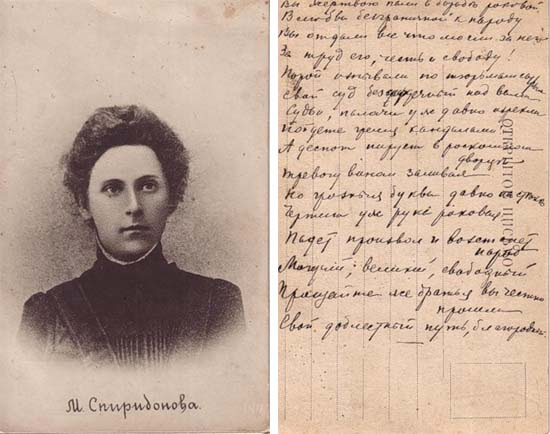 М. Спиридонова.
Вы жертвою пали в борьбѣ роковой
В любви безграничной к народу
Вы отдали все что могли за него
За труд его, честь и свободу!
Порой изнывали по тюрьмам сырым
Свой суд над вами
Судьи, палачи уж давно изрекли
Пойдете гремя кандалами
А деспот пирует в роскошном
дворце
Тревогу вином заливая
Но грозныя буквы давно на
Чертит уж рука роковая
Падет произвол и возстанет
народ
Могучий, великий, свободный
Прощайте же братья вы честно
прошли
Свой доблестный путь, благородный
ОТКРЫТОЕ ПИСЬМО